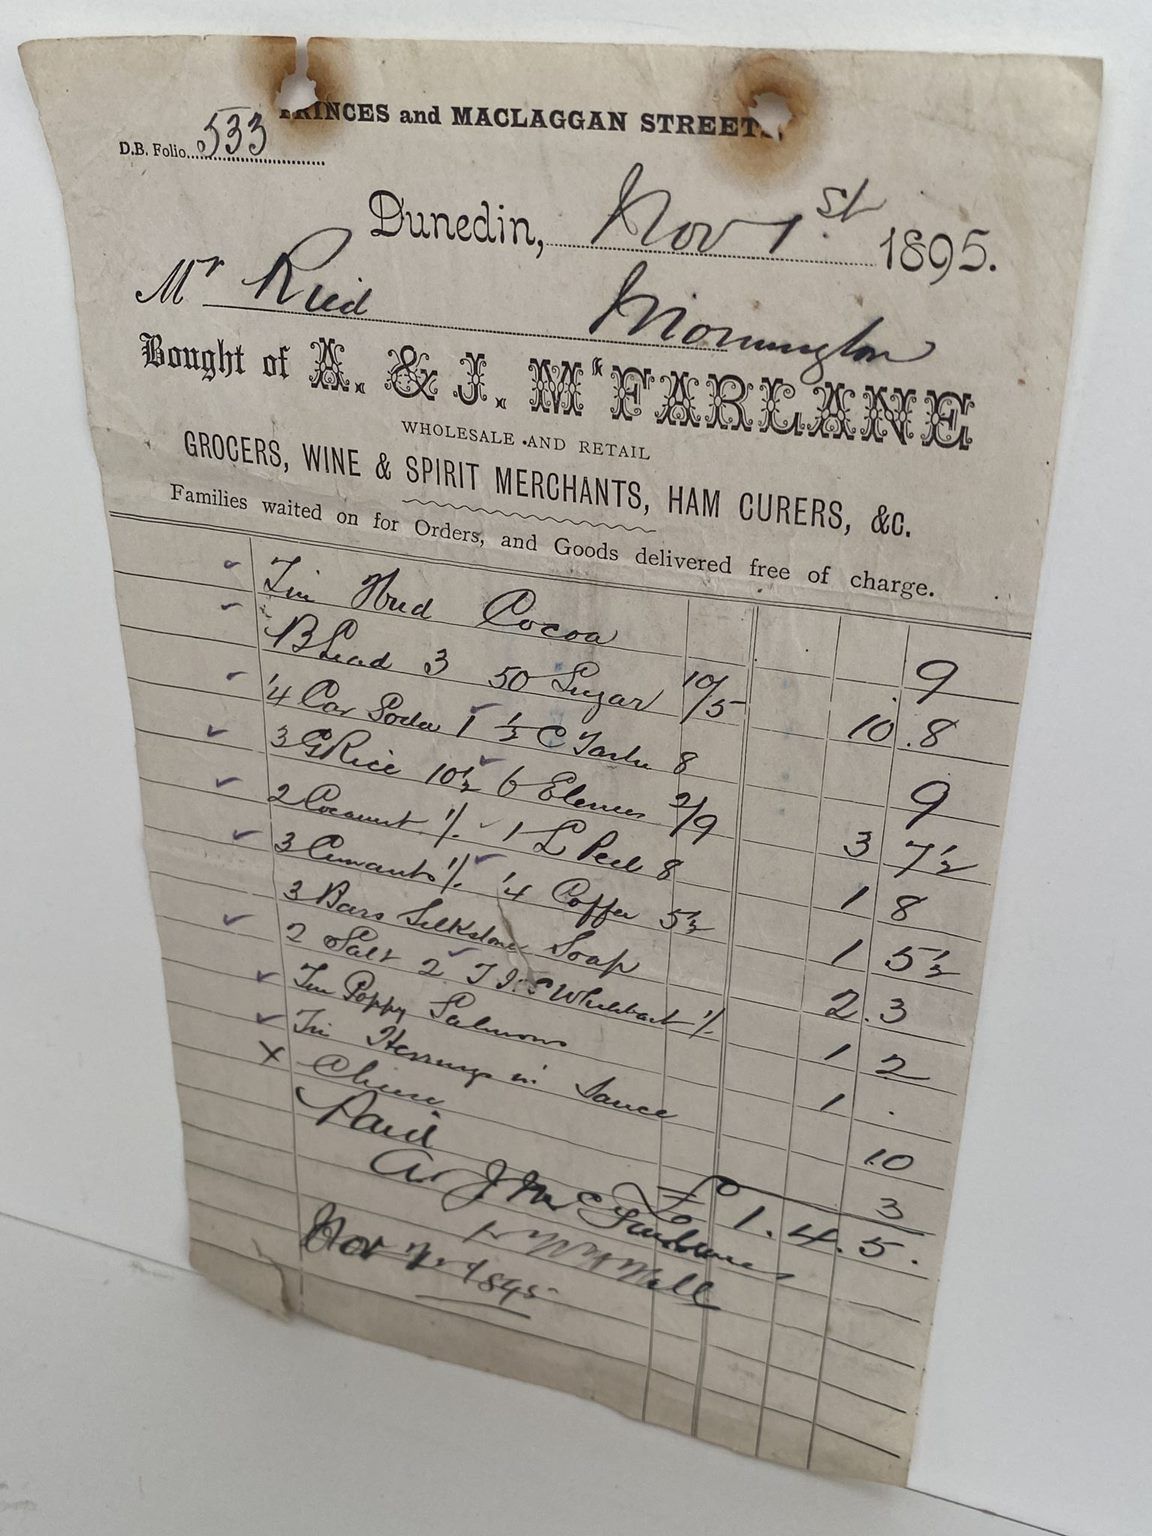 PRINCES and MACLAGGAN STREETS,
D.B. Folio 533
Dunedin, Nov 1st 1895.
Mr Reid Mornington
Bought of A. & J. McFARLANE
WHOLESALE AND RETAIL
GROCERS, WINE & SPIRIT MERCHANTS, HAM CURERS, &C.
Families waited on for Orders, and Goods delivered free of charge.
Tin Cocoa 9
Bread 3 50 Sugar 10/5 10.8
¼ Car Soda 1 ½ C Tartar 8 9
3 G Rice 10½ 6 2/9 3 7½
2 Cocoanut 1/. 1 L Peel 8 1 8
3 Currants 1/. ¼ Coffee 5½ 1 5½
3 Bars Silkstone Soap 2.3
2 Salt 2 1/. 1 2
Tin Poppy Salmons 1 .
Tin Herrings in Sauce 10
Cheese 3
Paid £1.4.5.
A & J McFarlane
Nov 1895